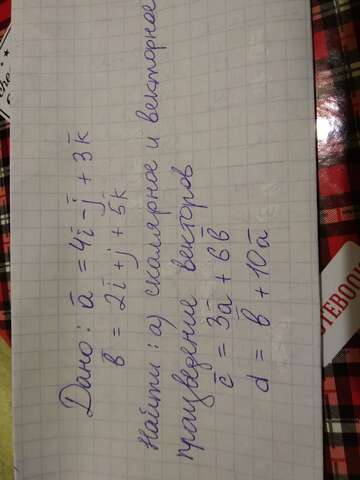 Дано: a̅ = 4i̅ - j̅ + 3k̅
b̅ = 2i̅ + j + 5k̅
Найти: а) скалярное и векторное
произведение векторов
c̅ = 3a̅ + 6b̅
d = b̅ + 10a̅
NOTEBOOK